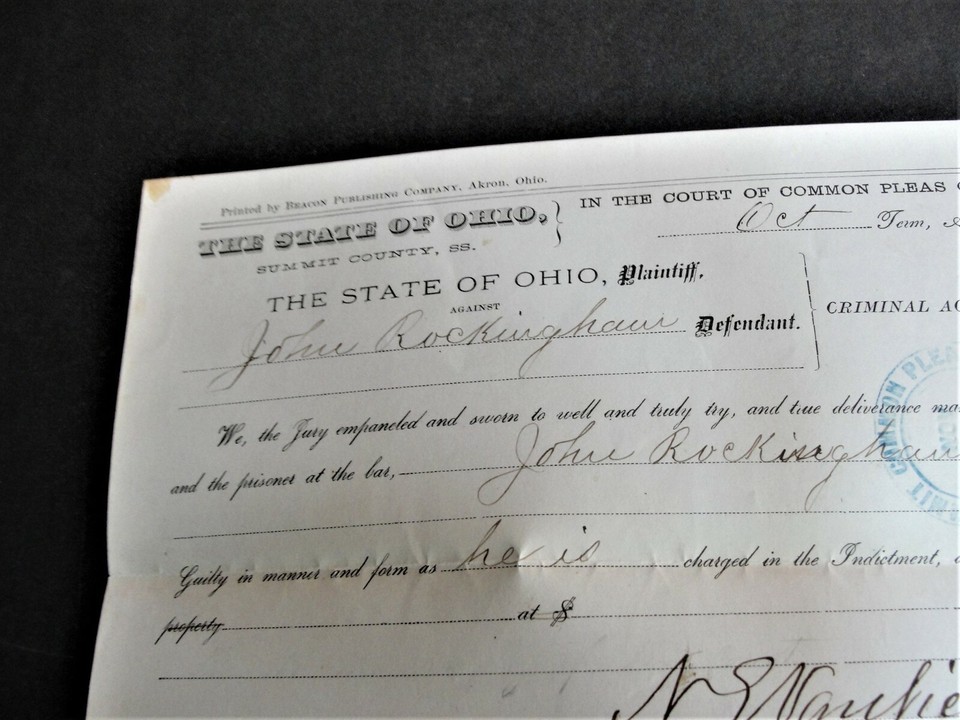 Printed by BEACON PUBLISHING COMPANY, Akron, Ohio.
THE STATE OF OHIO, } IN THE COURT OF COMMON PLEAS
SUMMIT COUNTY, SS. Oct Term,
THE STATE OF OHIO, Plaintiff,
AGAINST
John Rockingham Defendant. CRIMINAL
We, the Jury empaneled and sworn to well and truly try, and true deliverance
and the prisoner at the bar, John Rockingham
Guilty in manner and form as he is charged in the Indictment,
property at $